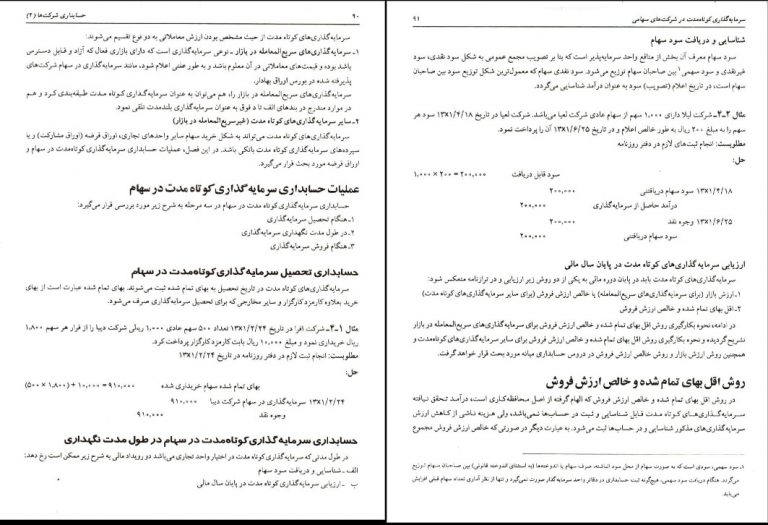 ۹۰
حسابداری شرکت‌ها (۲)
سرمایه‌گذاری‌های کوتاه مدت از حیث مشخص بودن ارزش معاملاتی به دو فوع تقسیم می‌شوند:
۱ـ سرمایه‌گذاری‌های سریع‌المعامله در بازار ـ نوعی سرمایه‌گذاری است که دارای بازاری فعال که آزاد و قابل دسترسی
باشد بوده و قیمت‌های معاملاتی در آن معلوم باشد و به طور علنی اعلام شود، مانند سرمایه‌گذاری در سهام شرکت‌های
پذیرفته شده در بورس اوراق بهادار.
سرمایه‌گذاری‌های سریع‌المعامله در بازار را، هم می‌توان به عنوان سرمایه‌گذاری کوتاه مدت طبقه‌بندی کرد و هم
در موارد مندرج در بندهای الف تا د فوق به عنوان سرمایه‌گذاری بلندمدت تلقی نمود.
۲ـ سایر سرمایه‌گذاری‌های کوتاه مدت (غیرسریع‌المعامله در بازار)
سرمایه‌گذاری‌های کوتاه مدت می‌تواند به شکل خرید سهام سایر واحدهای تجاری، اوراق قرضه (اوراق مشارکت) و یا
سپرده‌های سرمایه‌گذاری کوتاه مدت بانکی باشد. در این فصل، عملیات حسابداری سرمایه‌گذاری کوتاه مدت در سهام و
اوراق قرضه مورد بحث قرار می‌گیرد.
عملیات حسابداری سرمایه‌گذاری کوتاه مدت در سهام
حسابداری سرمایه‌گذاری کوتاه مدت در سهام در سه مرحله به شرح زیر مورد بررسی قرار می‌گیرد:
۱ـ هنگام تحصیل سرمایه‌گذاری
۲ـ در طول مدت نگهداری سرمایه‌گذاری
۳ـ هنگام فروش سرمایه‌گذاری
حسابداری تحصیل سرمایه‌گذاری کوتاه‌مدت در سهام
سرمایه‌گذاری کوتاه مدت در تاریخ تحصیل به بهای تمام شده ثبت می‌شوند. بهای تمام شده عبارت است از بهای
خرید بعلاوه کارمزد کارگزار و سایر مخارجی که برای تحصیل سرمایه‌گذاری صرف می‌شود.
مثال ۱ـ۴ـ شرکت افرا در تاریخ ۱۳×۱/۲/۲۴ تعداد ۵۰۰ سهم عادی ۱,۰۰۰ ریالی شرکت دیبا را از قرار هر سهم ۱,۸۰۰
ریال خریداری نمود و مبلغ ۱۰,۰۰۰ ریال بابت کارمزد کارگزار پرداخت کرد.
مطلوبست: انجام ثبت لازم در دفتر روزنامه در تاریخ ۱۳×۱/۲/۲۴
حل:
بهای تمام شده سهام خریداری شده (۵۰۰ × ۱,۸۰۰) + ۱۰,۰۰۰ = ۹۱۰,۰۰۰
۱۳×۱/۲/۲۴ سرمایه‌گذاری در سهام شرکت دیبا ۹۱۰,۰۰۰
وجوه نقد ۹۱۰,۰۰۰
حسابداری سرمایه‌گذاری کوتاه‌مدت در سهام در طول مدت نگهداری
در طول مدتی که سرمایه‌گذاری کوتاه مدت در اختیار واحد تجاری می‌باشد دو رویداد مالی به شرح زیر ممکن است رخ دهد:
الف ـ شناسایی و دریافت سود سهام
ب ـ ارزیابی سرمایه‌گذاری کوتاه مدت در پایان سال مالی
سرمایه‌گذاری کوتاه‌مدت در شرکت‌های سهامی
۹۱
شناسایی و دریافت سود سهام
سود سهام معرف آن بخش از منافع واحد سرمایه‌پذیر است که بنا بر تصویب مجمع عمومی به شکل سود نقدی، سود
غیرنقدی و سود سهمی۱ بین صاحبان سهام توزیع می‌شود. سود نقدی سهام که معمول‌ترین شکل توزیع سود بین صاحبان
سهام است، در تاریخ اعلام (تصویب) سود به عنوان درآمد شناسایی می‌گردد.
مثال ۲ـ۴ـ شرکت لیلا دارای ۱,۰۰۰ سهم از سهام عادی شرکت لعیا می‌باشد. شرکت لعیا در تاریخ ۱۳×۱/۴/۱۸ سود هر
سهم را به مبلغ ۲۰۰ ریال به طور خالص اعلام و در تاریخ ۱۳×۱/۶/۲۵ آن را پرداخت نمود.
مطلوبست: انجام ثبت‌های لازم در دفتر روزنامه
حل:
سود قابل دریافت ۱,۰۰۰ × ۲۰۰ = ۲۰۰,۰۰۰
۱۳×۱/۴/۱۸ سود سهام دریافتنی ۲۰۰,۰۰۰
درآمد حاصل از سرمایه‌گذاری ۲۰۰,۰۰۰
۱۳×۱/۶/۲۵ وجوه نقد ۲۰۰,۰۰۰
سود سهام دریافتنی ۲۰۰,۰۰۰
ارزیابی سرمایه‌گذاری‌های کوتاه مدت در پایان سال مالی
سرمایه‌گذاری‌های کوتاه مدت باید در پایان دوره مالی به یکی از دو روش زیر ارزیابی و در ترازنامه منعکس شود:
۱ـ ارزش بازار (برای سرمایه‌گذاری‌های سریع‌المعامله) یا خالص ارزش فروش (برای سایر سرمایه‌گذاری‌های کوتاه مدت)
۲ـ اقل بهای تمام شده و خالص ارزش فروش
در ادامه، نحوه بکارگیری روش اقل بهای تمام شده و خالص ارزش فروش برای سرمایه‌گذاری‌های سریع‌المعامله در بازار
تشریح گردیده و نحوه بکارگیری روش اقل بهای تمام شده و خالص ارزش فروش برای سایر سرمایه‌گذاری‌های کوتاه‌مدت و
همچنین روش ارزش بازار و خالص ارزش فروش در دروس حسابداری میانه مورد بحث قرار خواهد گرفت.
روش اقل بهای تمام شده و خالص ارزش فروش
در روش اقل بهای تمام شده و خالص ارزش فروش که الهام گرفته از اصل محافظه‌کاری است، درآمد تحقق نیافته
سرمایه‌گذاری‌های کوتاه مدت قابل شناسایی و ثبت در حساب‌ها نمی‌باشد، ولی هزینه ناشی از کاهش ارزش
سرمایه‌گذاری‌های مذکور شناسایی و در حساب‌ها ثبت می‌شود. به عبارت دیگر در صورتی که خالص ارزش فروش مجموع
۱ـ سود سهمی، سودی است که به صورت سهام از محل سود انباشته، صرف سهام یا اندوخته‌ها (به استثنای اندوخته قانونی) بین صاحبان سهام توزیع
می‌گردد. هنگام دریافت سود سهمی، هیچگونه ثبت حسابداری در دفاتر واحد سرمایه‌گذار صورت نمی‌گیرد و تنها از نظر آماری تعداد سهام قبلی افزایش
می‌یابد.